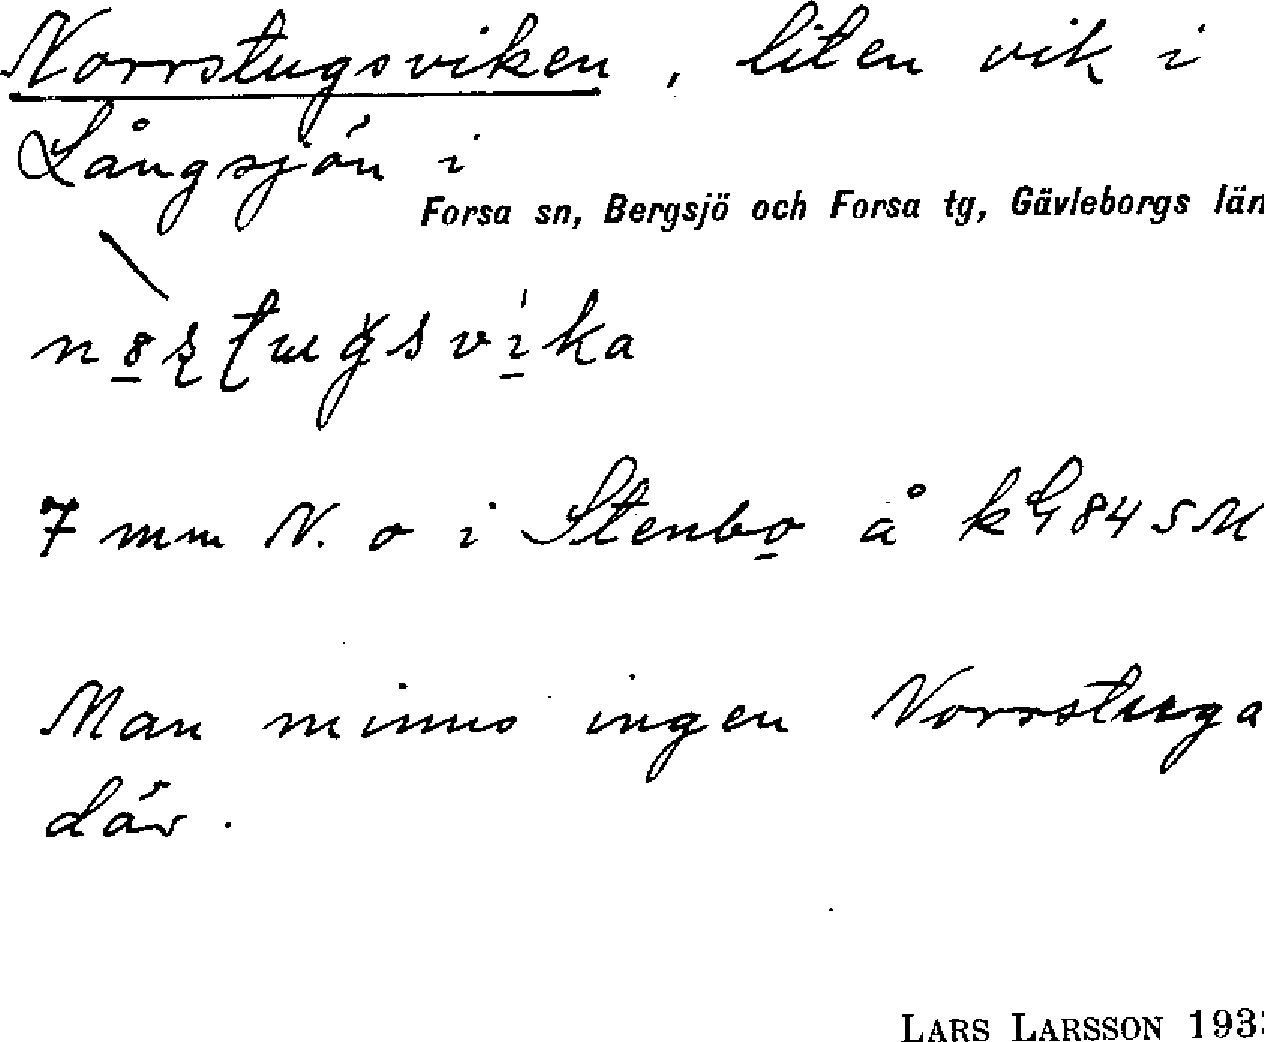 Norrstugsviken, liten vik i
Långsjön i
Forsa sn, Bergsjö och Forsa tg, Gävleborgs län
7 mm N. o i Stenbo å kG 845M
Man minns ingen Norrstuga
där.
LARS LARSSON 193